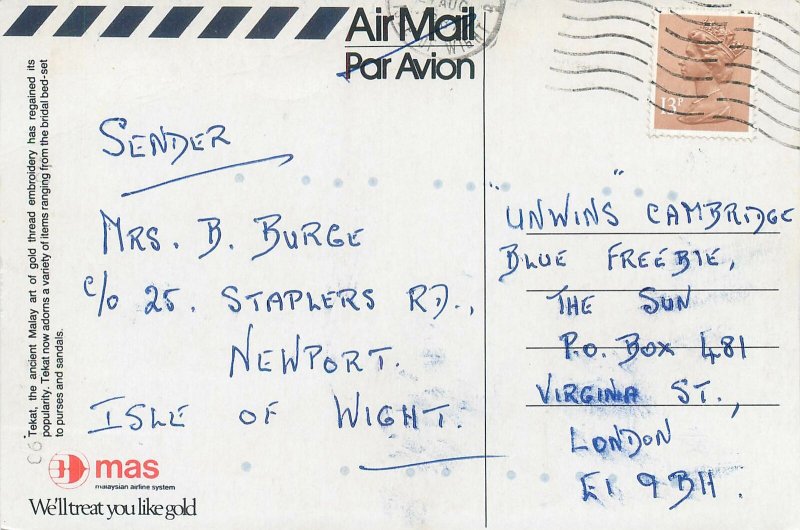 Air Mail
Par Avion
AUG
WIGHT
13P
Tekat, the ancient Malay art of gold thread embroidery has regained its
popularity. Tekat now adorns a variety of items ranging from the bridal bed-set
to purses and sandals.
SENDER
MRS. B. BURGE
c/o 25. STAPLERS RD.,
NEWPORT.
ISLE OF WIGHT.
"UNWINS" CAMBRIDGE
BLUE FREEBIE,
THE SUN
P.O. BOX 481
VIRGINIA ST.,
LONDON
E1 9BH.
mas
malaysian airline system
We'll treat you like gold